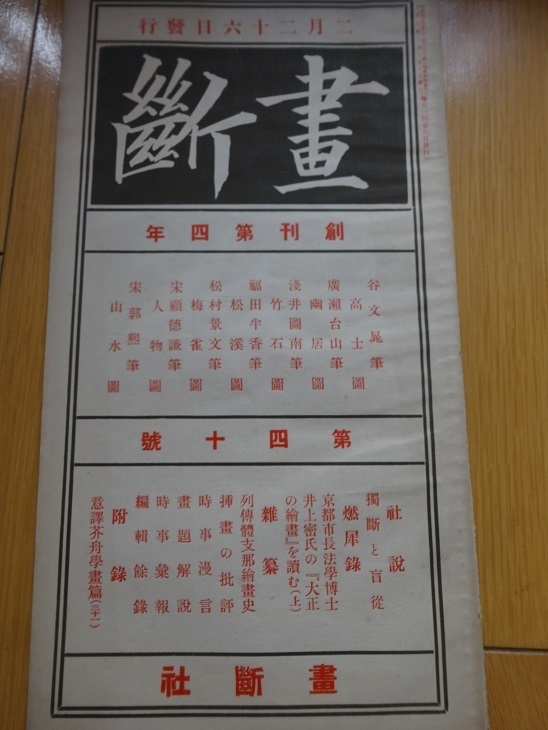 二月二十六日發行
畫斷
創刊第四年
谷文晁筆
高士圖
廣瀬台山筆
幽居圖
淺井圖南筆
竹石圖
福田半香筆
松溪圖
松村景文筆
梅雀圖
宋顧德謙筆
人物圖
宋郭熙筆
山水圖
第四十號
社說
獨斷と盲從
燃犀錄
京都市長法學博士
井上密氏の『大正
の繪畫』を讀む(上)
雜纂
列傳體支那繪畫史
挿畫の批評
時事漫言
畫題解說
時事彙報
編輯餘錄
附錄
意譯芥舟學畫篇(三十一)
畫斷社